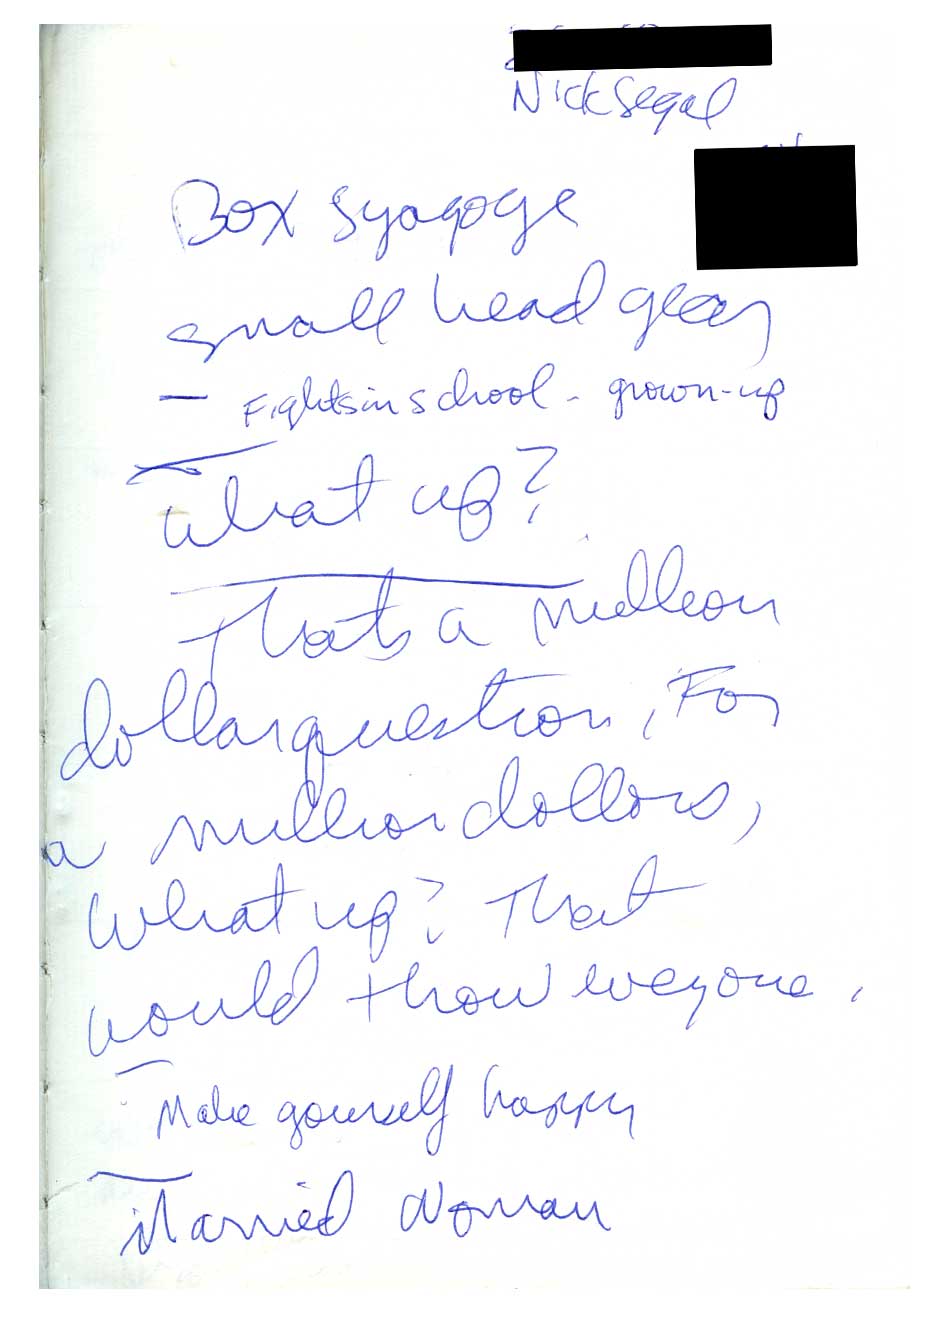 Nick Segal
Box Syagoge
small head gear
— Fights in school - grown-up
What up?
That's a million
dollar question, For
a million dollars,
What up? That
would throw everyone.
Make yourself happy
Married Woman